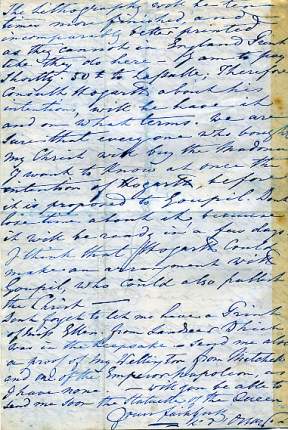 the lithography will be ten
times more finished and
incomparably better printed
as they can wish in England I send
like they do here — I am to pay
Shortly 50 £ to Lasalle; Therefore
Consult Hogarth about his
intention, will he have it
and on which terms. we are
sure that every one who bought
my Christ will buy the Madonna
I want to know all over the
intention of Hogarth, before
it is proposed to Goupil.
about it, because
it will be ready in a few days
I think that Hogarth could
make an arrangement with
Goupil who could also publish
the Christ —
dont forget to let me have a Print
of miss Ellen from Landseer Which
was in the Keepsake — Send me also
a proof of my Wellington from Mitchels
and one of the Emperor Napoleon as
I have none — will you be able to
send me soon the Statuette of the Queen
Yours faithfully